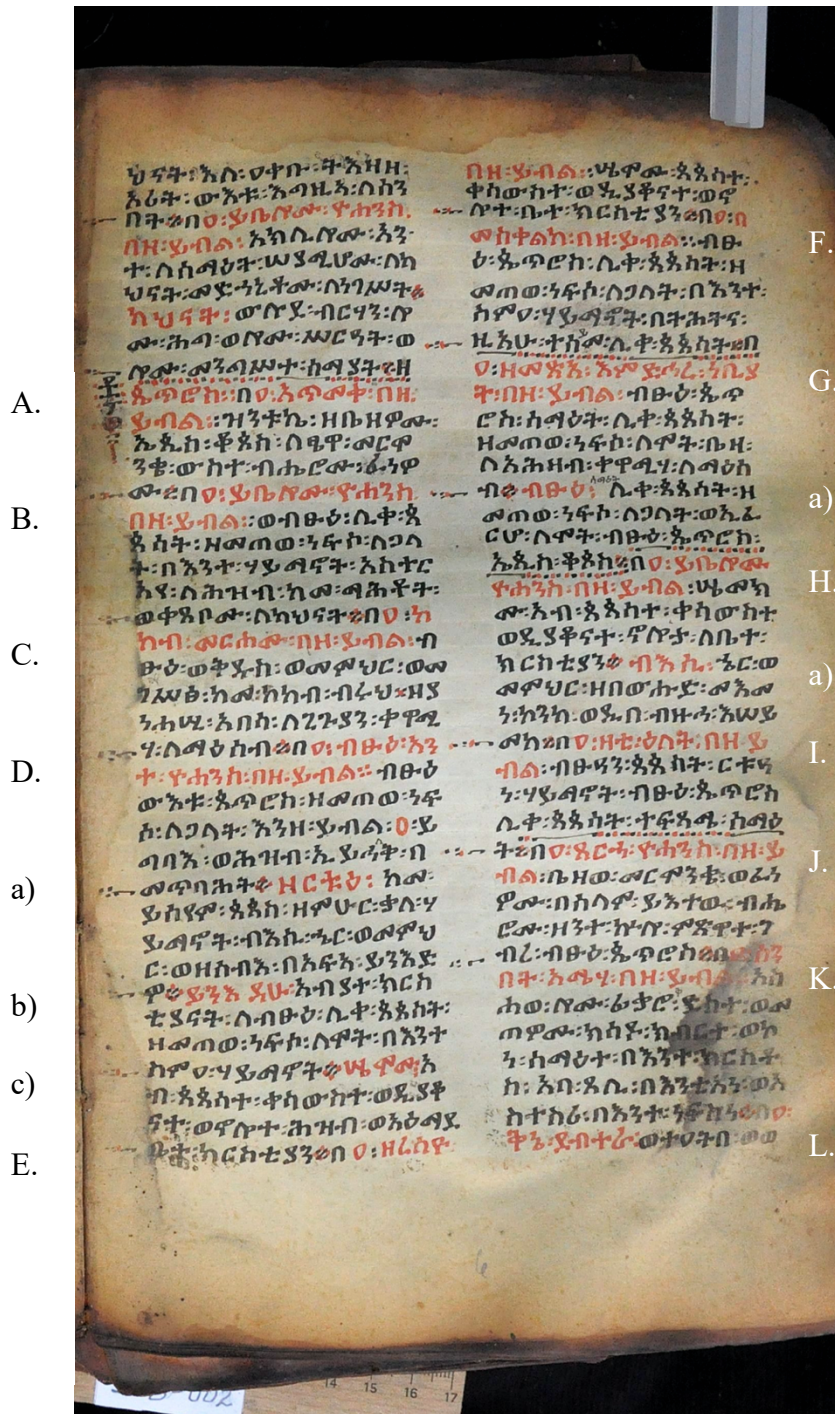 ህናት፡እለ፡ዐቀቡ፡ትእዛዘ፡
ኦሪት፡ውእቱ፡እግዚኣ፡ለሰን
በት፨በ፡ዐ፡ይቤሎሙ፡ዮሐንስ፡
በዘ፡ይብል፡አክሊሎሙ፡አን
ተ፡ለሰማዕት፡ሠያሚሆሙ፡ለካ
ህናት፡መድኃኒቶሙ፡ለነገሥት፨
ካህናት፡
ሙ፡ሕግ፡ወሎሙ፡ሥርዓት፡ወ
ሎሙ፡መንግሥተ፡ሰማያት፨ዘ
A. ጴጥሮስ፡በ፡ዐ፡አጥመቀ፡በዘ፡
ይብል፡ዝንቱኬ፡ዘቤዘዎሙ፡
ኤጲስ፡ቆጶስ፡ለፄዋ፡መርዋ
ንቄ፡ውስተ፡ብሔሮሙ፡ፈነዎ
ሙ፨በ፡ዐ፡ይቤሎሙ፡ዮሐንስ
B. በዘ፡ይብል፡ወብፁዕ፡ሊቀ፡ጳ
ጳሳት፡ዘመጠወ፡ነፍሶ፡ለጋላ
ት፡በእንተ፡ሃይማኖት፡አስተር
አየ፡ለሕዝብ፡ከመ፡ማሕቶት፡
ወቀጸቦሙ፡ለካህናት፨በ፡ዐ፡ኮ
ከብ፡መርሖሙ፡በዘ፡ይብል፡ብ
C. ፁዕ፡ወቅዱስ፡ወመምህር፡ወመ
ገሥፅ፡ከመ፡ኮከብ፡ብሩህ፡ዘያ
ነሐሢ፡አበሳ፡ለጊጉያን፡ቀዋሚ
ሃ፡ለማዕስብ፨በ፡ዐ፡ብፁዕ፡አን
D. ተ፡ዮሐንስ፡በዘ፡ይብል፡ብፁዕ
ውእቱ፡ጴጥሮስ፡ዘመጠወ፡ነፍ
ሶ፡ለጋላት፡እንዘ፡ይብል፡ዐ፡ይ
ግባእ፡ወሕዝብ፡ኢይኅልቅ፡በ
a) መጥባሕት፨ዘርቱዕ፡ከመ፡
ይሰየም፡ጳጳስ፡ዘምሁር፡ቃለ፡ሃ
ይማኖት፡ብእሴ፡ኄር፡ወመምህ
ር፡ወዘስብእ፡በአፍኣ፡ይንእድ
b) ዎ፨ይንእድዋ፡አብያተ፡ክርስ
ቲያናት፡ለብፁዕ፡ሊቀ፡ጳጳሳት፡
ዘመጠወ፡ነፍሶ፡ለሞት፡በእንተ
c) ስምዐ፡ሃይማኖት፨ሤሞሙ፡አ
ብ፡ጳጳሳተ፡ቀሳውስተ፡ወዲያቆ
ናተ፡ወኖሎተ፡ሕዝብ፡ወአዕማደ
E. ቤተ፡ክርስቲያን፨በ፡ዐ፡ዘረሰዮ
በዘ፡ይብል፡ሤሞሙ፡ጳጳሳተ፡
ቀሳውስተ፡ወዲያቆናተ፡ወኖ
ሎተ፡ቤተ፡ክርስቲያን፨በ፡ዐ፡በ
F. መስቀልከ፡በዘ፡ይብል፡ብፁ
ዕ፡ጴጥሮስ፡ሊቀ፡ጳጳሳት፡ዘ
መጠወ፡ነፍሶ፡ለጋላት፡በእንተ፡
ስምዐ፡ሃይማኖት፡በትሕትና፡
ዚአሁ፡ተሰምዐ፡ሊቀ፡ጳጳሳት፨በ
G. ዐ፡ዘመጽአ፡እምድኅረ፡ነቢያ
ት፡በዘ፡ይብል፡ብፁዕ፡ጴጥ
ሮስ፡ሰማዕት፡ሊቀ፡ጳጳሳት፡
ዘመጠወ፡ነፍሶ፡ለሞት፡ቤዛ፡
ለአሕዛብ፡ቀዋሚሃ፡ለማዕስ
a) ብ፨ብፁዕ፡ሊቀ፡ጳጳሳት፡ዘ
መጠወ፡ነፍሶ፡ለጋላት፡ወኢፈ
ርሀ፡ለሞት፡ብፁዕ፡ጴጥሮስ፡
ኤጲስ፡ቆጶስ፨በ፡ዐ፡ይቤሎሙ
H. ዮሐንስ፡በዘ፡ይብል፡ሤመክ
ሙ፡አብ፡ጳጳሳተ፡ቀሳውስተ
ወዲያቆናተ፡ኖሎታ፡ለቤተ፡
a) ክርስቲያን፨ብእሴ፡ኄር፡ወ
መምህር፡ዘበውሑድ፡ምእመ
ነ፡ኮንከ፡ወዲበ፡ብዙኅ፡እሠይ
I. መከ፨በ፡ዐ፡ዛቲ፡ዕለት፡በዘ፡ይ
ብል፡ብፁዓን፡ጳጳሳት፡ርቱዓ
ነ፡ሃይማኖት፡ብፁዕ፡ጴጥሮስ
ሊቀ፡ጳጳሳት፡ተፍጻሜ፡ሰማዕ
J. ት፨በ፡ዐ፡ጸርሐ፡ዮሐንስ፡በዘ፡ይ
ብል፡ቤዘወ፡መርዋንቄ፡ወፈነ
ዎሙ፡በሰላም፡ይእተዉ፡ብሔ
ሮሙ፡ዘንተ፡ኵሎ፡ምጽዋተ፡ገ
ብረ፡ብፁዕ፡ጴጥሮስ፨በ፡ዐ፡ሰን
K. በት፡አሜሃ፡በዘ፡ይብል፡አስ
ሐወ፡ሎሙ፡
ጠዎሙ፡ክሳዶ፡ክብርተ፡ወኮ
ነ፡ሰማዕተ፡በእንተ፡ክርስቶ
ስ፡
ስተስሪ፡በእንተ፡ነፍስነ፨በ፡ዐ፡
L. ቅኔ፡ደብተራ፡
14 15 16 17